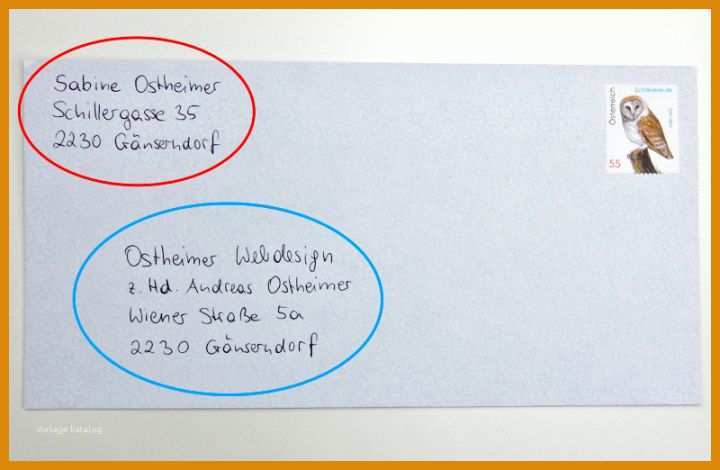 Sabine Ostheimer
Schillergasse 35
2230 Gänserndorf
Österreich
55
Ostheimer Webdesign
z. Hd. Andreas Ostheimer
Wiener Straße 5a
2230 Gänserndorf
vorlage katalog